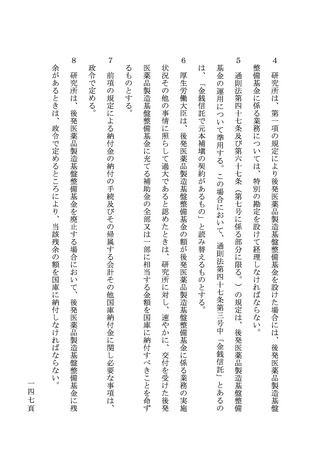 ４　研究所は、第一項の規定により後発医薬品製造基盤整備基金を設けた場合には、後発医薬品製造基盤
整備基金に係る業務については、特別の勘定を設けて経理しなければならない。
５　通則法第四十七条及び第六十七条（第七号に係る部分に限る。）の規定は、後発医薬品製造基盤整備
基金の運用について準用する。この場合において、通則法第四十七条第三号中「金銭信託」とあるの
は、「金銭信託で元本補塡の契約があるもの」と読み替えるものとする。
６　厚生労働大臣は、後発医薬品製造基盤整備基金の額が後発医薬品製造基盤整備基金に係る業務の実施
状況その他の事情に照らして過大であると認めたときは、研究所に対し、速やかに、交付を受けた後発
医薬品製造基盤整備基金に充てる補助金の全部又は一部に相当する金額を国庫に納付すべきことを命ず
るものとする。
７　前項の規定による納付金の納付の手続及びその帰属する会計その他国庫納付金に関し必要な事項は、
政令で定める。
８　研究所は、後発医薬品製造基盤整備基金を廃止する場合において、後発医薬品製造基盤整備基金に残
余があるときは、政令で定めるところにより、当該残余の額を国庫に納付しなければならない。
一四七頁